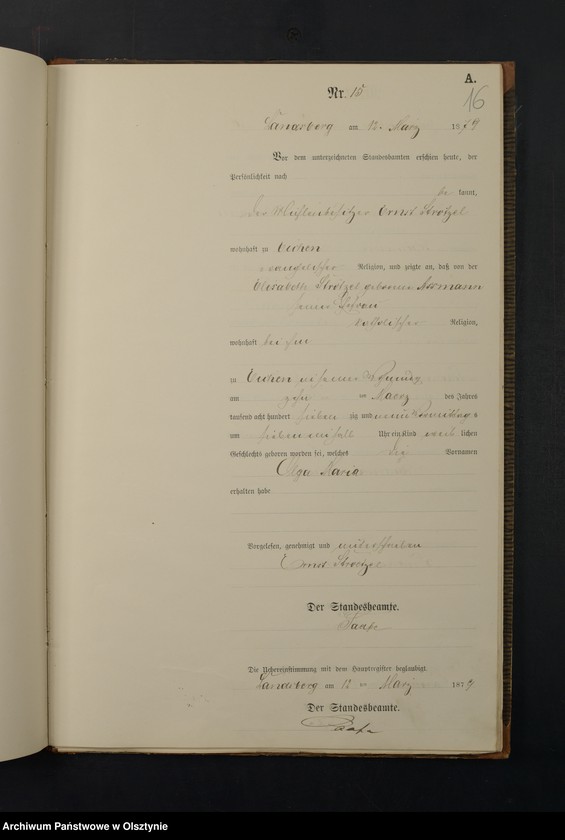 A.
16
Nr. 15
am 12ten März 1879
Vor dem unterzeichneten Standesbeamten erschien heute, der
Persönlichkeit nach
be kannt,
der Ernst Strötzel
wohnhaft zu
evangelischer Religion, und zeigte an, daß von der
Elisabeth Strötzel geborenen
seiner Ehefrau
katholischer Religion,
wohnhaft bei ihm
zu in seiner Wohnung
am zehn ten März des Jahres
tausend acht hundert sieben zig und neun Vormittags
um sieben einhalb Uhr ein Kind weib lichen
Geschlechts geboren worden sei, welches Vornamen
Olga Maria
erhalten habe
Vorgelesen, genehmigt und unterschrieben
Ernst Strötzel
Der Standesbeamte.
Die Uebereinstimmung mit dem Hauptregister beglaubigt.
am 12 ten März 1879
Der Standesbeamte.
Archiwum Państwowe w Olsztynie